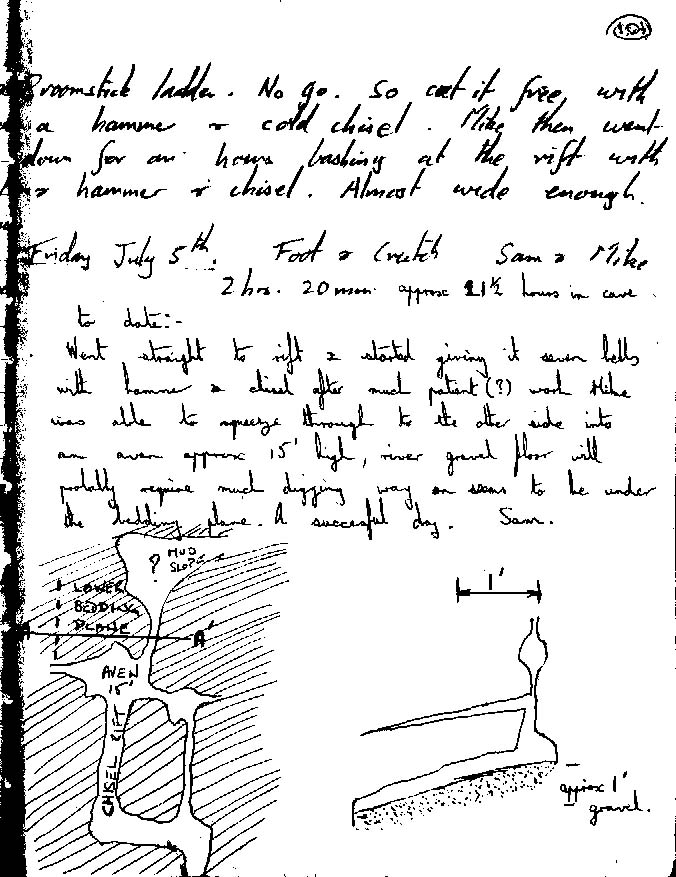 101
Broomstick ladder. No go. So cut it free, with
a hammer & cold chisel. Mike then went
down for an hours bashing at the rift with
hammer & chisel. Almost wide enough.
Friday July 5th. Foot & Crutch Sam & Mike
2 hrs. 20 min. approx 21½ hours in cave
to date:-
Went straight to rift & started giving it seven bells
with hammer & chisel after much patient (?) work Mike
was able to squeeze through to the other side into
an aven approx 15' high, river gravel floor will
probably require much digging way on seems to be under
the bedding plane. A succesful day. Sam.
? MUD
SLOPE
LOWER
BEDDING
PLANE
A A'
AVEN
15'
CHISEL RIFT
1'
approx 1'
gravel.